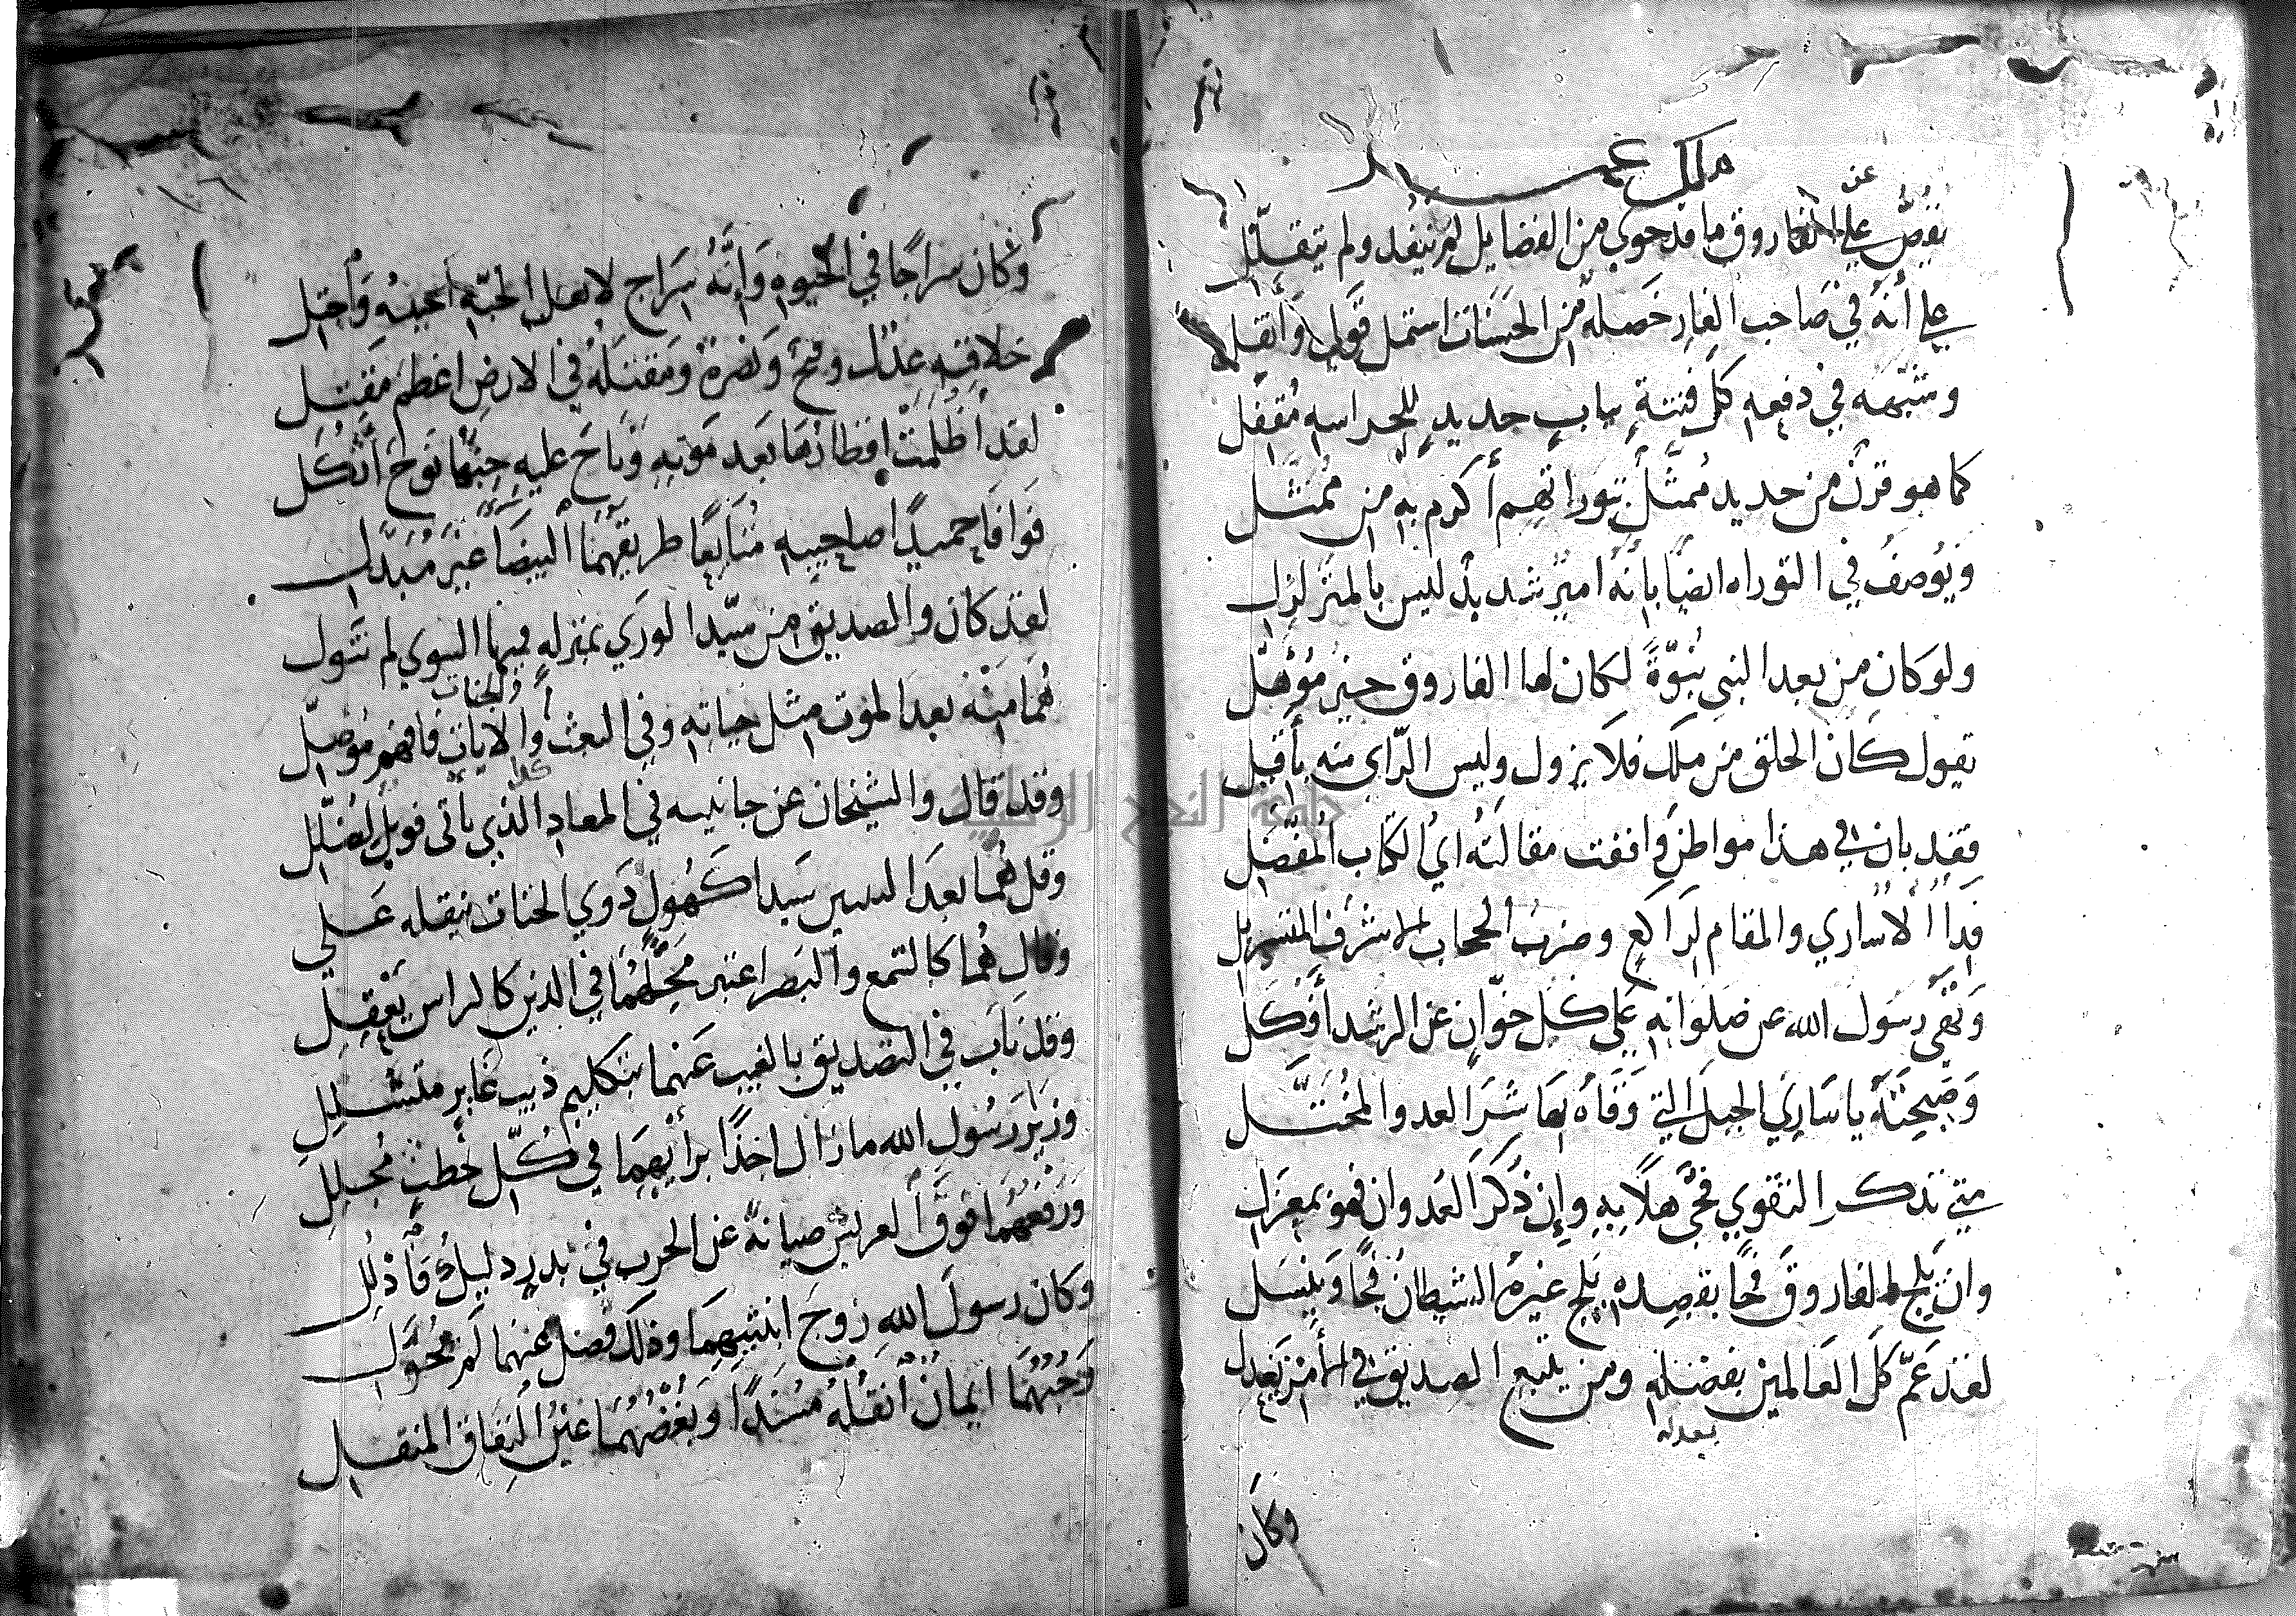 عن
يقص على الفاروق ما قد حوى من الفضايل لم ينفد ولم يتقلل
على أنه في صاحب الغار خصلة من الحسنات استمل قولي وأنقل
وشبهه في دفعه كل فتنة بباب حديد للحراسه مقفل
كما هو قرن من حديد ممثل بتوراتهم أكرم به من ممثل
ويوصف في التوراه ايضا بأنه امير شديد ليس بالمتزلزل
ولو كان من بعد النبي نبوة لكان لها الفاروق خير مؤهل
يقول كان الحق من ملك فلا يزول وليس الرأي منه بأفيل
فقد بان في هذا مواطن وافقت مقالته اي الكتاب المفصل
فدا الاساري والمقام لراكع وضرب الحجاب الاشرف المتسربل
ونهى رسول الله عن صلواته على كل خوان عن الرشد أفكل
وصيحته يا ساري الجبل التي وقاه بها شر العدو المختل
متى تذكر التقوي فحي هلا به وإن ذكر العدوان فهو بمعزل
وان يلج الفاروق فجا بقصده يلج غيره الشيطان فجا وينسل
لقد عم كل العالمين بفضله ومن يتبع الصديق في الأمر يعدل
بعدله
وكان
وكان سراجا في الحيوه وإنه سراج لاهل الجنة أحببه وأجتل
خلافته عدل وفتح ونصرة ومقتله في الارض اعظم مقتل
لقد أظلمت اقطارها بعد موته وناح عليه جنها نوح أثكل
فوافا حميدا صاحبيه متابعا طريقهما البيضا غير مبدل
لقد كان والصديق من سيد الوري بمنزلة فيها السوي لم تنول
والجنات
هما منه بعد الموت مثل حياته وفي البعث والايات فافهم موصل
كذا
وقد قال والشيخان عن جانبيه في المعاد الذي يأتي فويل لضلل
وقل هما بعد النبيين سيدا كهول ذوي الجنات نقله علي
وقال هما كالسمع والبصر اعتبر محلهما في الدين كالراس يعقل
وقد ناب في التصديق بالغيب عنهما بتكليم ذيب غابر متسلل
وزير رسول الله ما زال اخذا برأيهما في كل خطب مجلل
ورفعهما فوق العريش صيانة عن الحرب في بدر دليل فأذلل
وكان رسول الله زوج ابنتيهما وذلك فضل عنهما لم يحول
وحبهما ايمان انقله مسندا وبغضهما عين النفاق المنقل